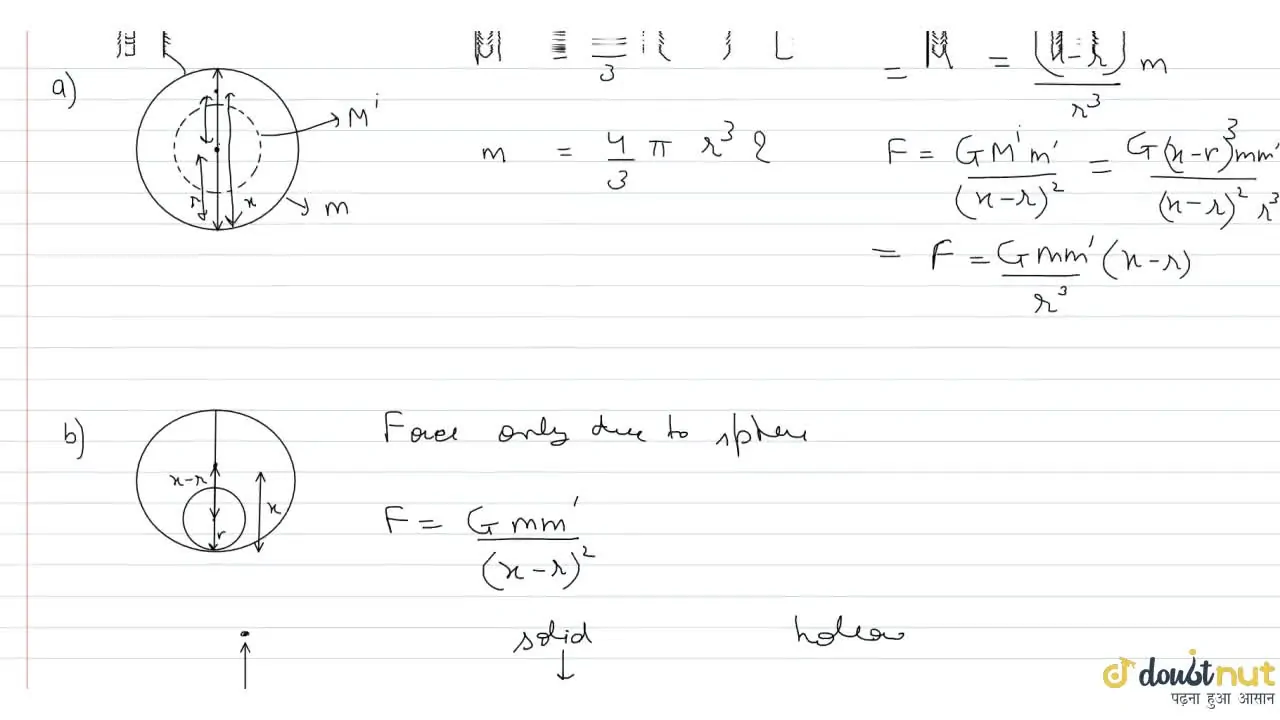 a)
M'
r
x
m
= 
3
m = 4/3 π r³ ρ
= M' = (x-r)³/r³ m
F = GM'm'/(x-r)² = G(x-r)³mm'/(x-r)² r³
= F = Gmm'/r³ (x-r)
b)
x-r
x
r
Force only due to sphere
F = Gmm'/(x-r)²
solid hollow
doubtnut
पढ़ना हुआ आसान